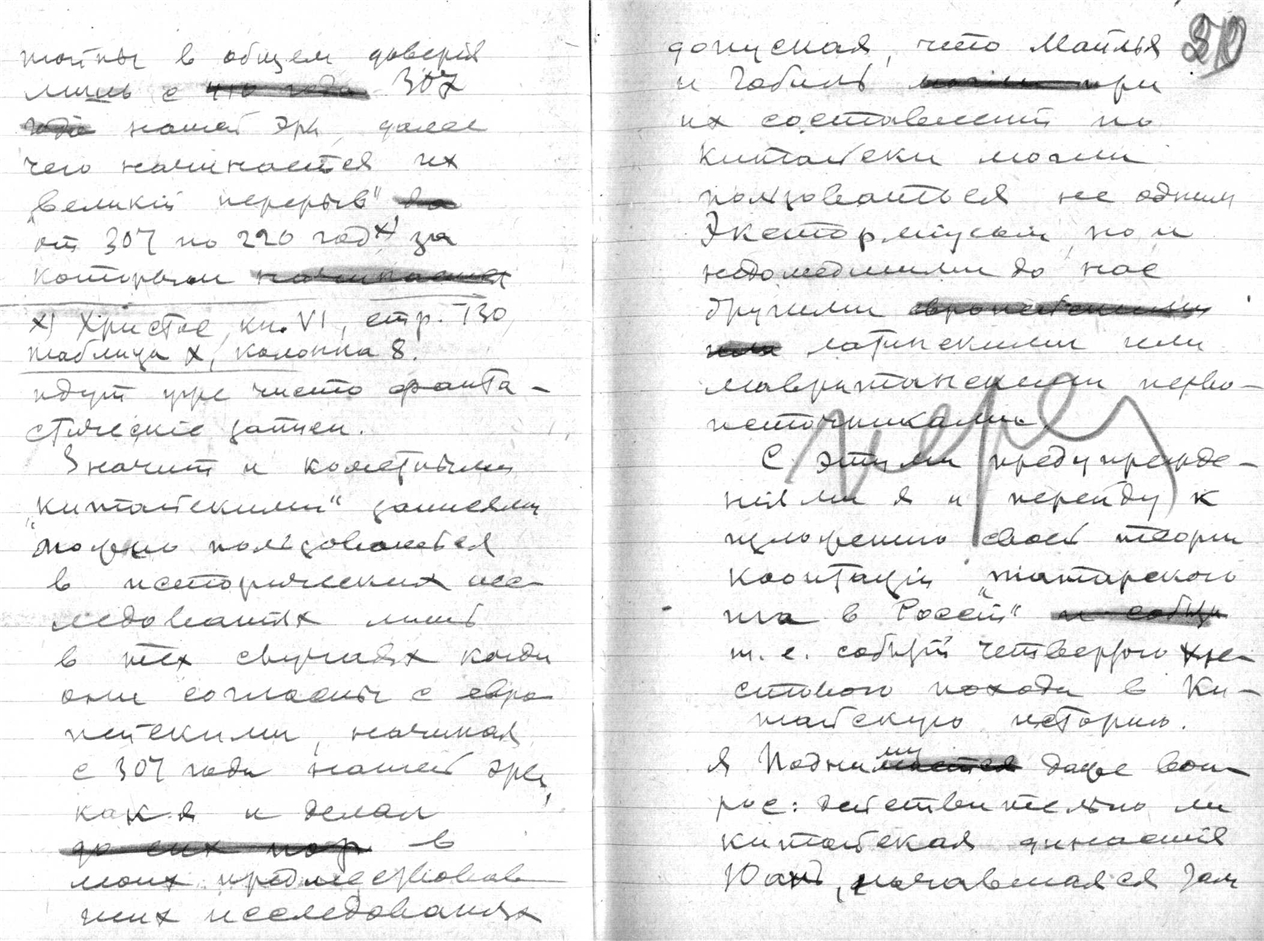 тойны в общем доверія
лишь с 410 года 307
года нашей эры, далее
чего начинается их
"великій перерыв" до
от 307 по 220 год х) за
которым начинается
х) Христос, кн. VI, стр. 130,
таблица X, колонка 8.
идут уже чисто фанта-
стическіе записи.
Значит и кометными
"китайскими" записями
можно пользоваться
в исторических изс-
ледованіях лишь
в тех случаях когда
они согласны с евро
пейскими, начиная
с 307 года нашей эры,
как я и делал
до сих пор в
моих предшествовав
ших исследованіях
270
допуская, что Майлья
и Гобиль могли при
их составленіи по
китайски могли
пользоваться не одним
Экстормиусом, но и
недошедшими до нас
другими европейскими
или латинскими или
мавританскими перво-
источниками.
черед
С этими предупрежде-
ніями я и перейду к
изложенію своей теоріи
коаптаціи "татарского
ига в Россіи" и собы
т. е. событій четвертого кре-
стового похода в Ки-
тайскую историю.
Я Поднимаетсяму даже воп-
рос: действительно ли
китайская династія
Юань, начавшаяся зам